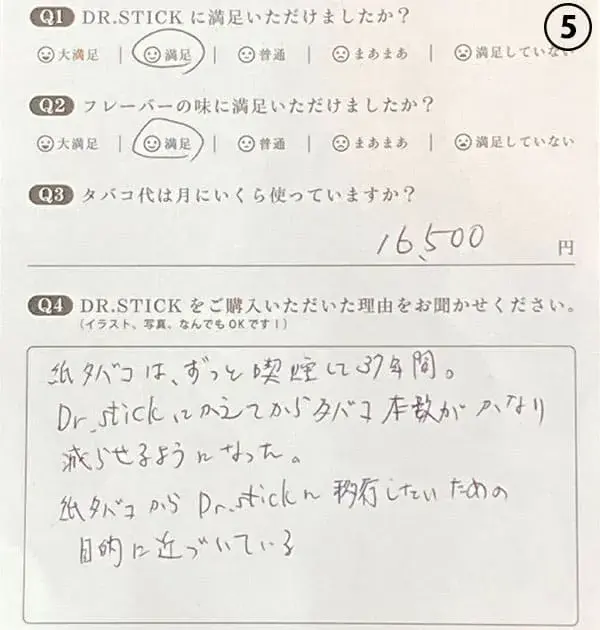 ⑤
Q1 DR.STICK に満足いただけましたか？
大満足 | 満足 | 普通 | まあまあ | 満足していない
Q2 フレーバーの味に満足いただけましたか？
大満足 | 満足 | 普通 | まあまあ | 満足していない
Q3 タバコ代は月にいくら使っていますか？
16,500 円
Q4 DR.STICK をご購入いただいた理由をお聞かせください。
(イラスト、写真、なんでもOKです！)
紙タバコは、ずっと喫煙して37年間。
Dr.stickにかえてからタバコ本数がかなり
減らせるようになった。
紙タバコからDr.stickに移行したいための
目的に近づいている